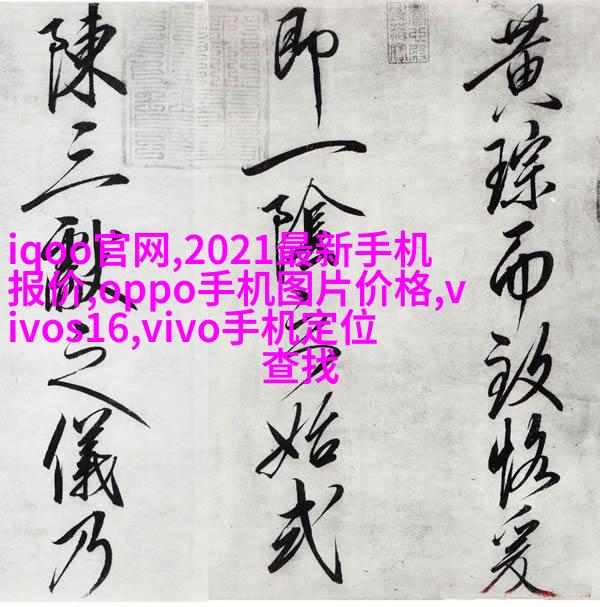 黃琮而致恪爰
即一陰始式
陳三獻之儀乃
iqoo官网,2021最新手机
报价,oppo手机图片价格,v
ivos16,vivo手机定位
查找